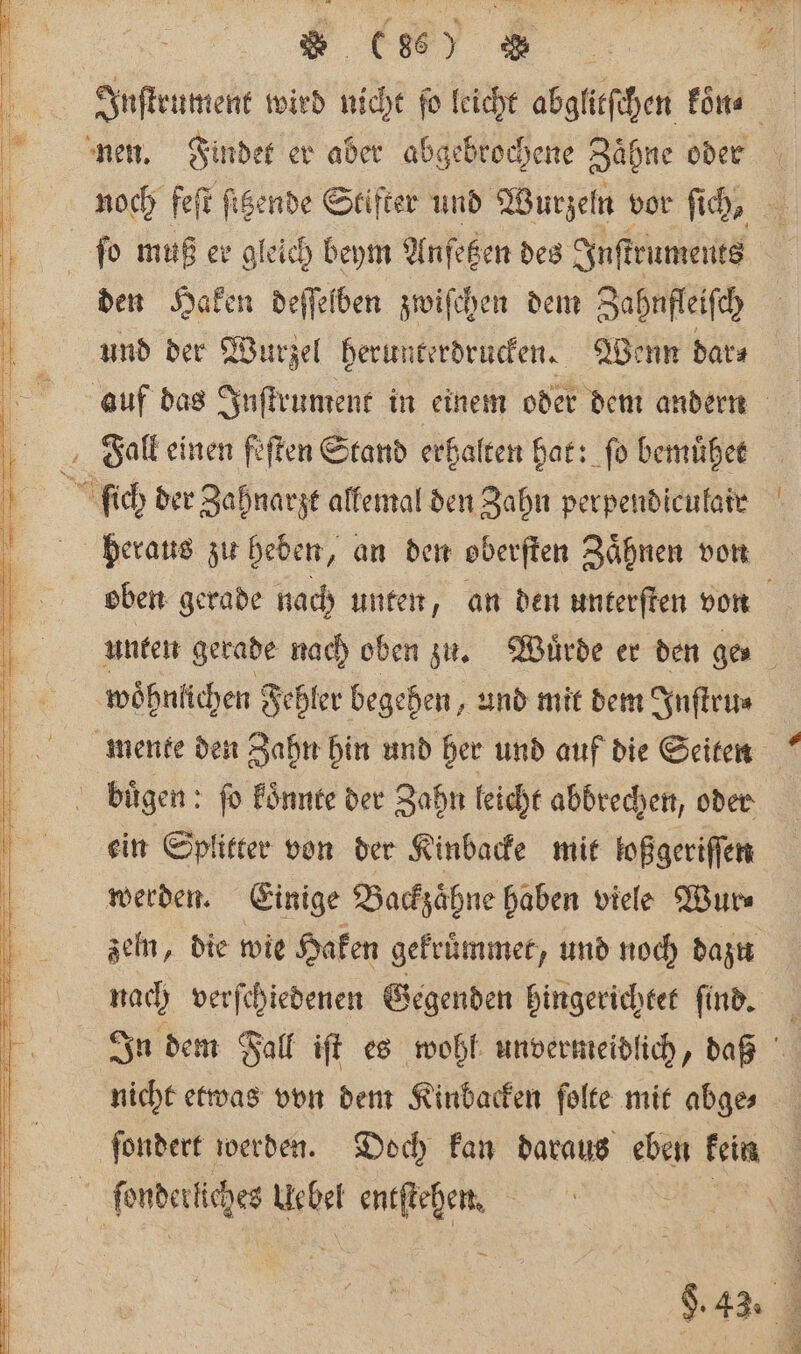 ❦ (86) ❦
Inſtrument wird nicht ſo leicht abglitſchen koͤn⸗
nen. Findet er aber abgebrochene Zaͤhne oder
noch feſt ſitzende Stifter und Wurzeln vor ſich,
ſo muß er gleich beym Anſetzen des Inſtruments
den Haken deſſelben zwiſchen dem Zahnfleiſch
und der Wurzel herunterdrucken. Wenn dar⸗
auf das Inſtrument in einem oder dem andern
Fall einen feſten Stand erhalten hat: ſo bemuͤhet
ſich der Zahnarzt allemal den Zahn perpendiculair
heraus zu heben, an den oberſten Zaͤhnen von
oben gerade nach unten, an den unterſten von
unten gerade nach oben zu. Wuͤrde er den ge⸗
woͤhnlichen Fehler begehen, und mit dem Inſtru⸗
mente den Zahn hin und her und auf die Seiten
buͤgen: ſo koͤnnte der Zahn leicht abbrechen, oder
ein Splitter von der Kinbacke mit loßgeriſſen
werden. Einige Backzaͤhne haben viele Wur⸗
zeln, die wie Haken gekruͤmmet, und noch dazu
nach verſchiedenen Gegenden hingerichtet ſind.
In dem Fall iſt es wohl unvermeidlich, daß
nicht etwas von dem Kinbacken ſolte mit abge⸗
ſondert werden. Doch kan daraus eben kein
ſonderliches Uebel entſtehen.
§. 43.